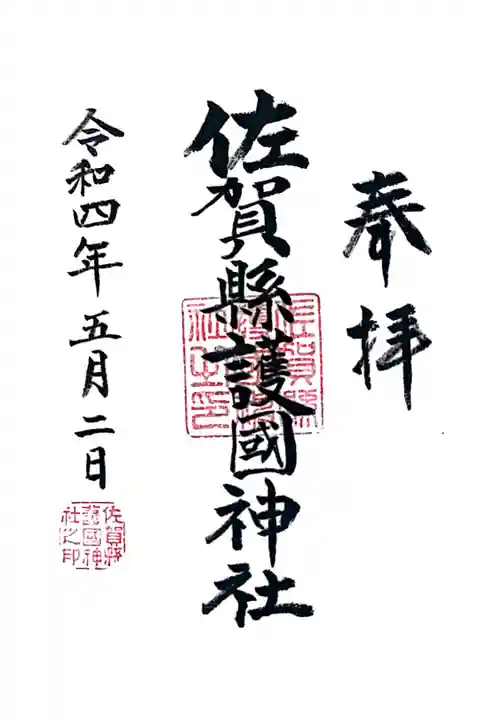 奉拝
佐賀縣護國神社
佐賀縣護國神社之印
令和四年五月二日
佐賀縣護國神社之印